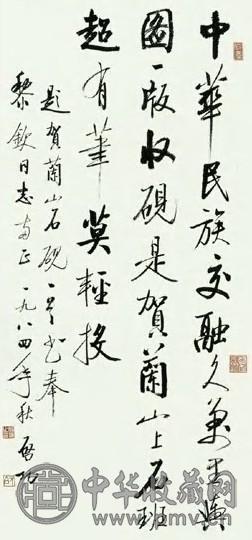 中華民族交融久萬里輿
圖一版收硯是賀蘭山上石班
超有筆莫輕投
題賀蘭山石硯一首書奉
黎欽同志正一九八四年秋 啟功
中华收藏网